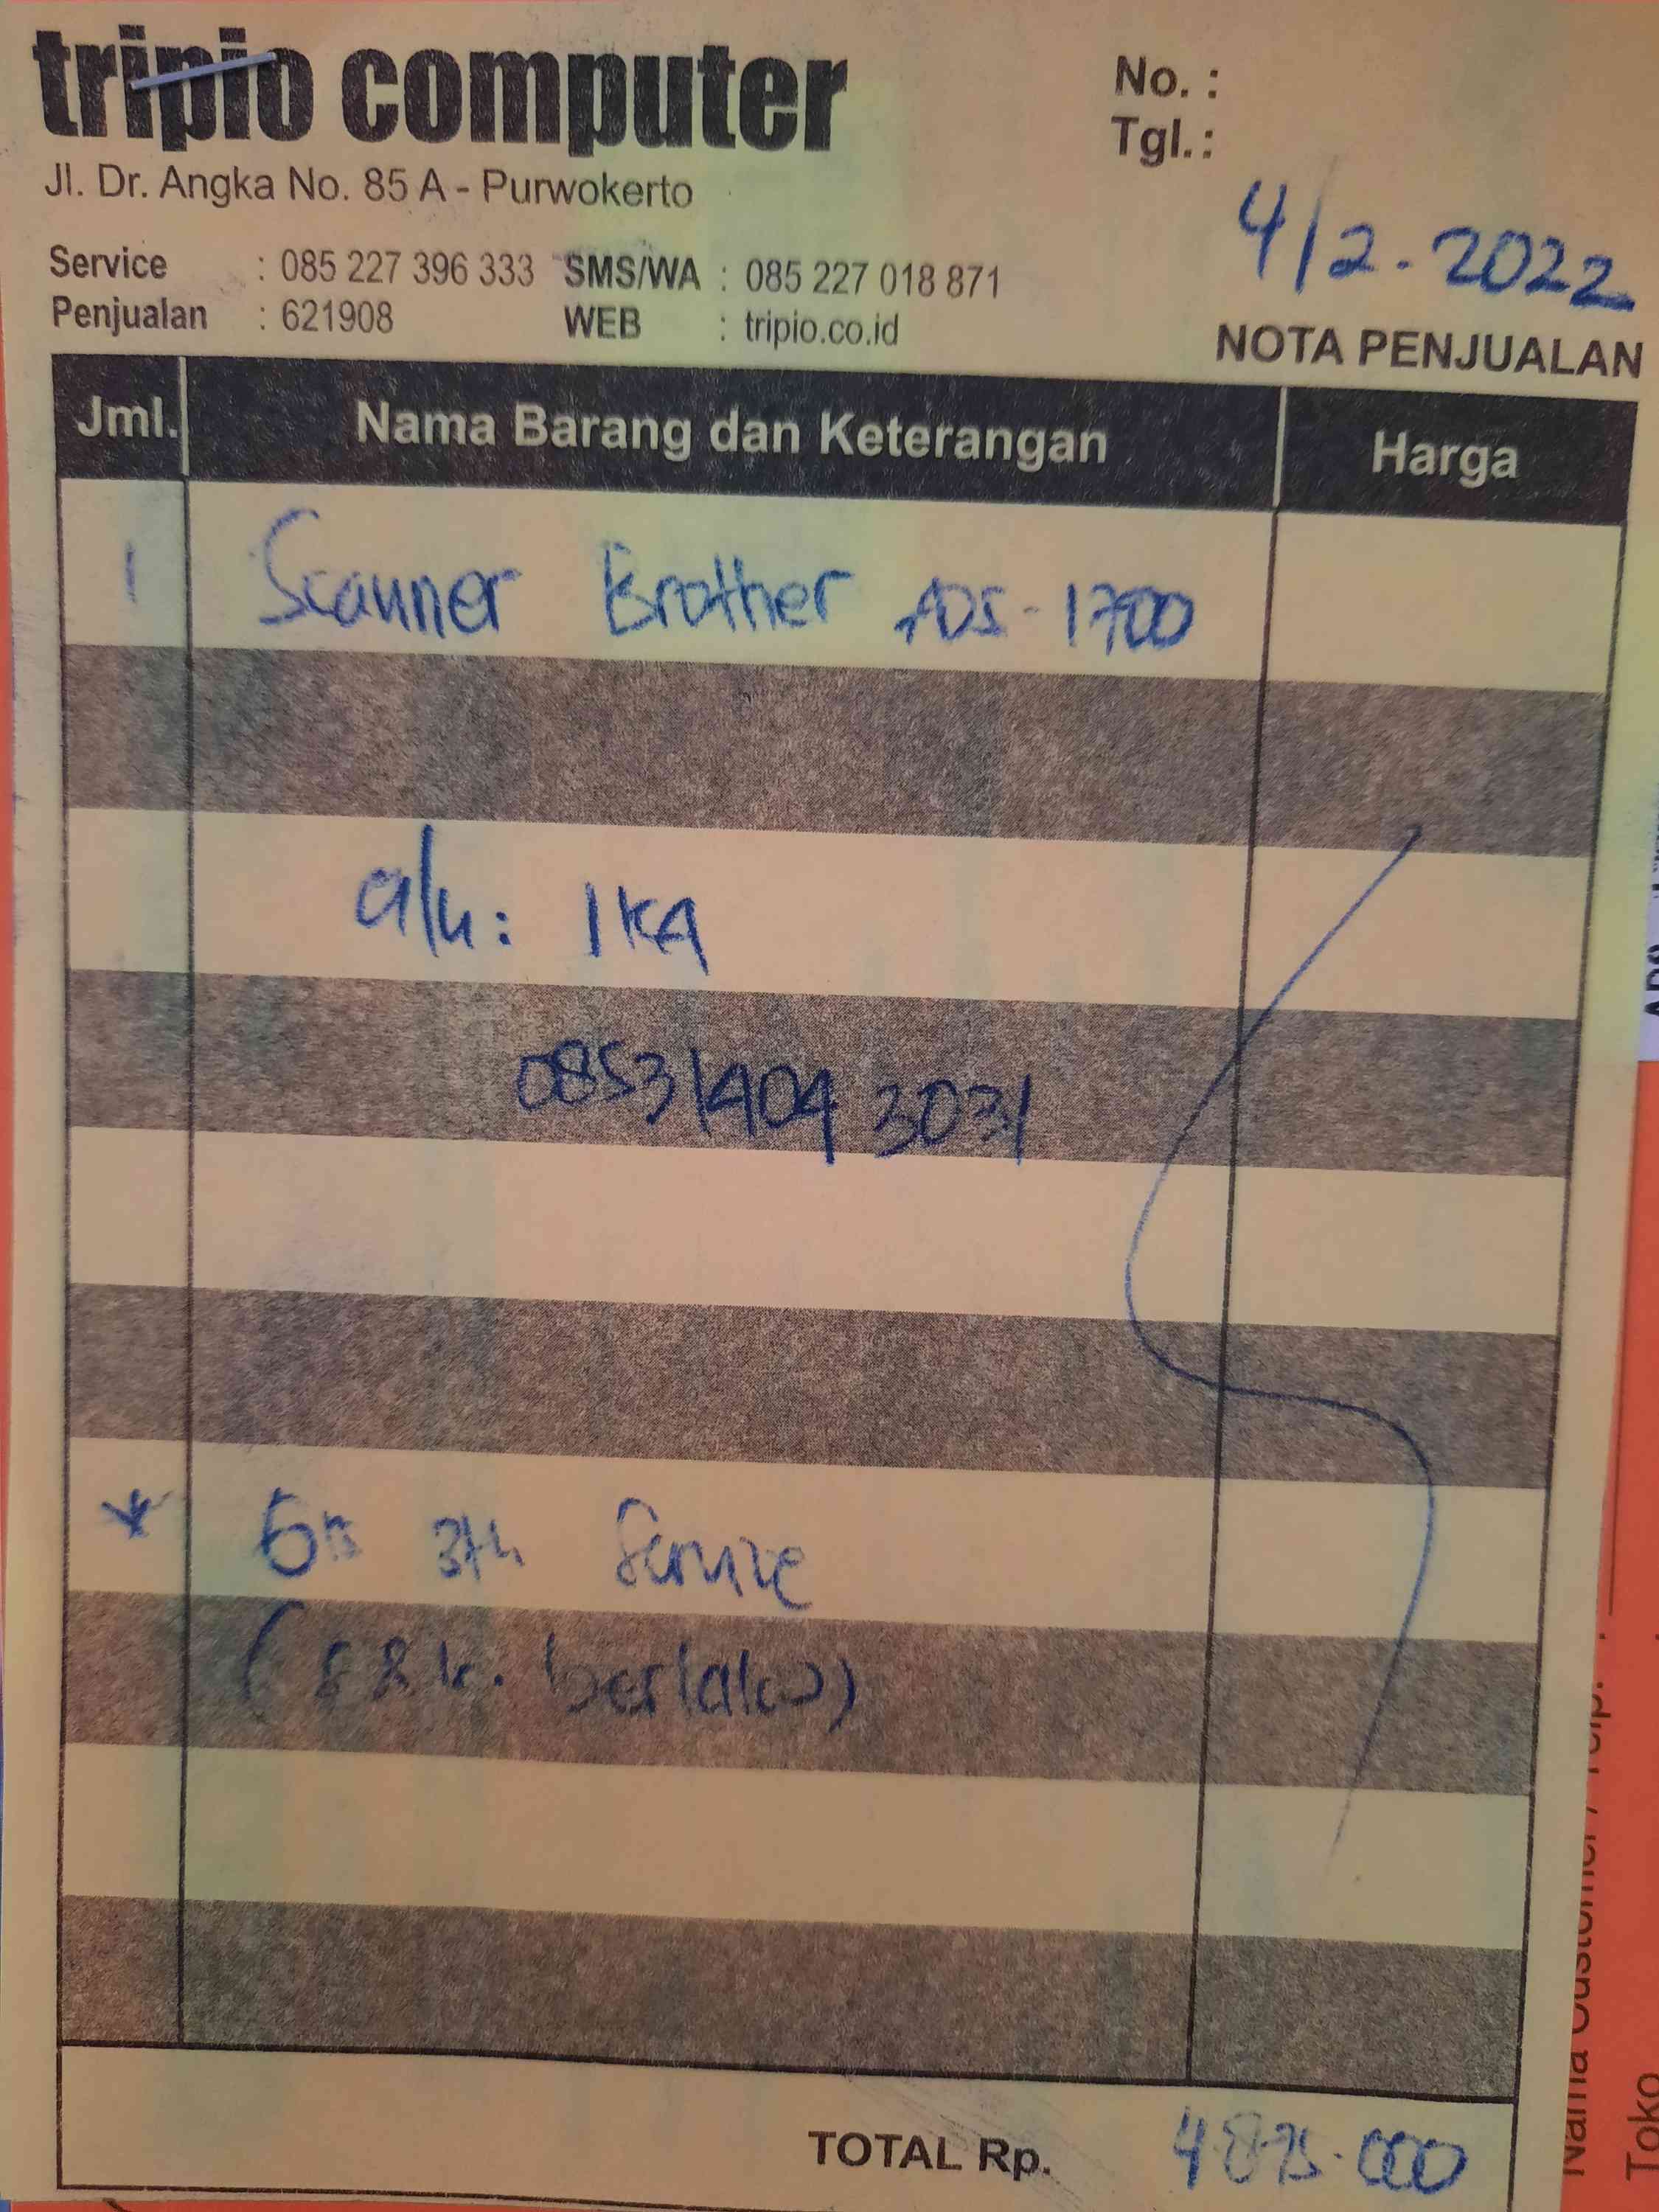 tripio computer
Jl. Dr. Angka No. 85 A - Purwokerto
Service : 085 227 396 333 SMS/WA : 085 227 018 871
Penjualan : 621908 WEB : tripio.co.id
No. :
Tgl. :
4/2-2022
NOTA PENJUALAN
Jml. Nama Barang dan Keterangan Harga
1 Scanner Brother ADS-1700
a/n: IKA
0853 1404 3031
* 3th Service
(S&k. berlaku)
TOTAL Rp. 4.875.000
Nama Customer / Telp.
Toko